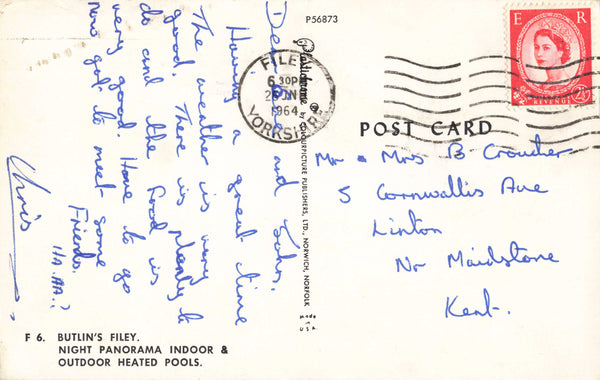 P56873
Dear and John.
Having a great time
The weather is very
good. There is plenty to
do and the food is
very good Have to go
now got to meet some
Friends.
HA.HA.!!
Chris
FILEY
6 30PM
1964
YORKSHIRE
Plastichrome ® by COLOURPICTURE PUBLISHERS, LTD., NORWICH, NORFOLK
Made in U.S.A.
E R
POSTAGE
REVENUE
2½D
POST CARD
Mr & Mrs B Croucher
5 Cornwallis Ave
Linton
Nr Maidstone
Kent.
F 6. BUTLIN'S FILEY.
NIGHT PANORAMA INDOOR &
OUTDOOR HEATED POOLS.